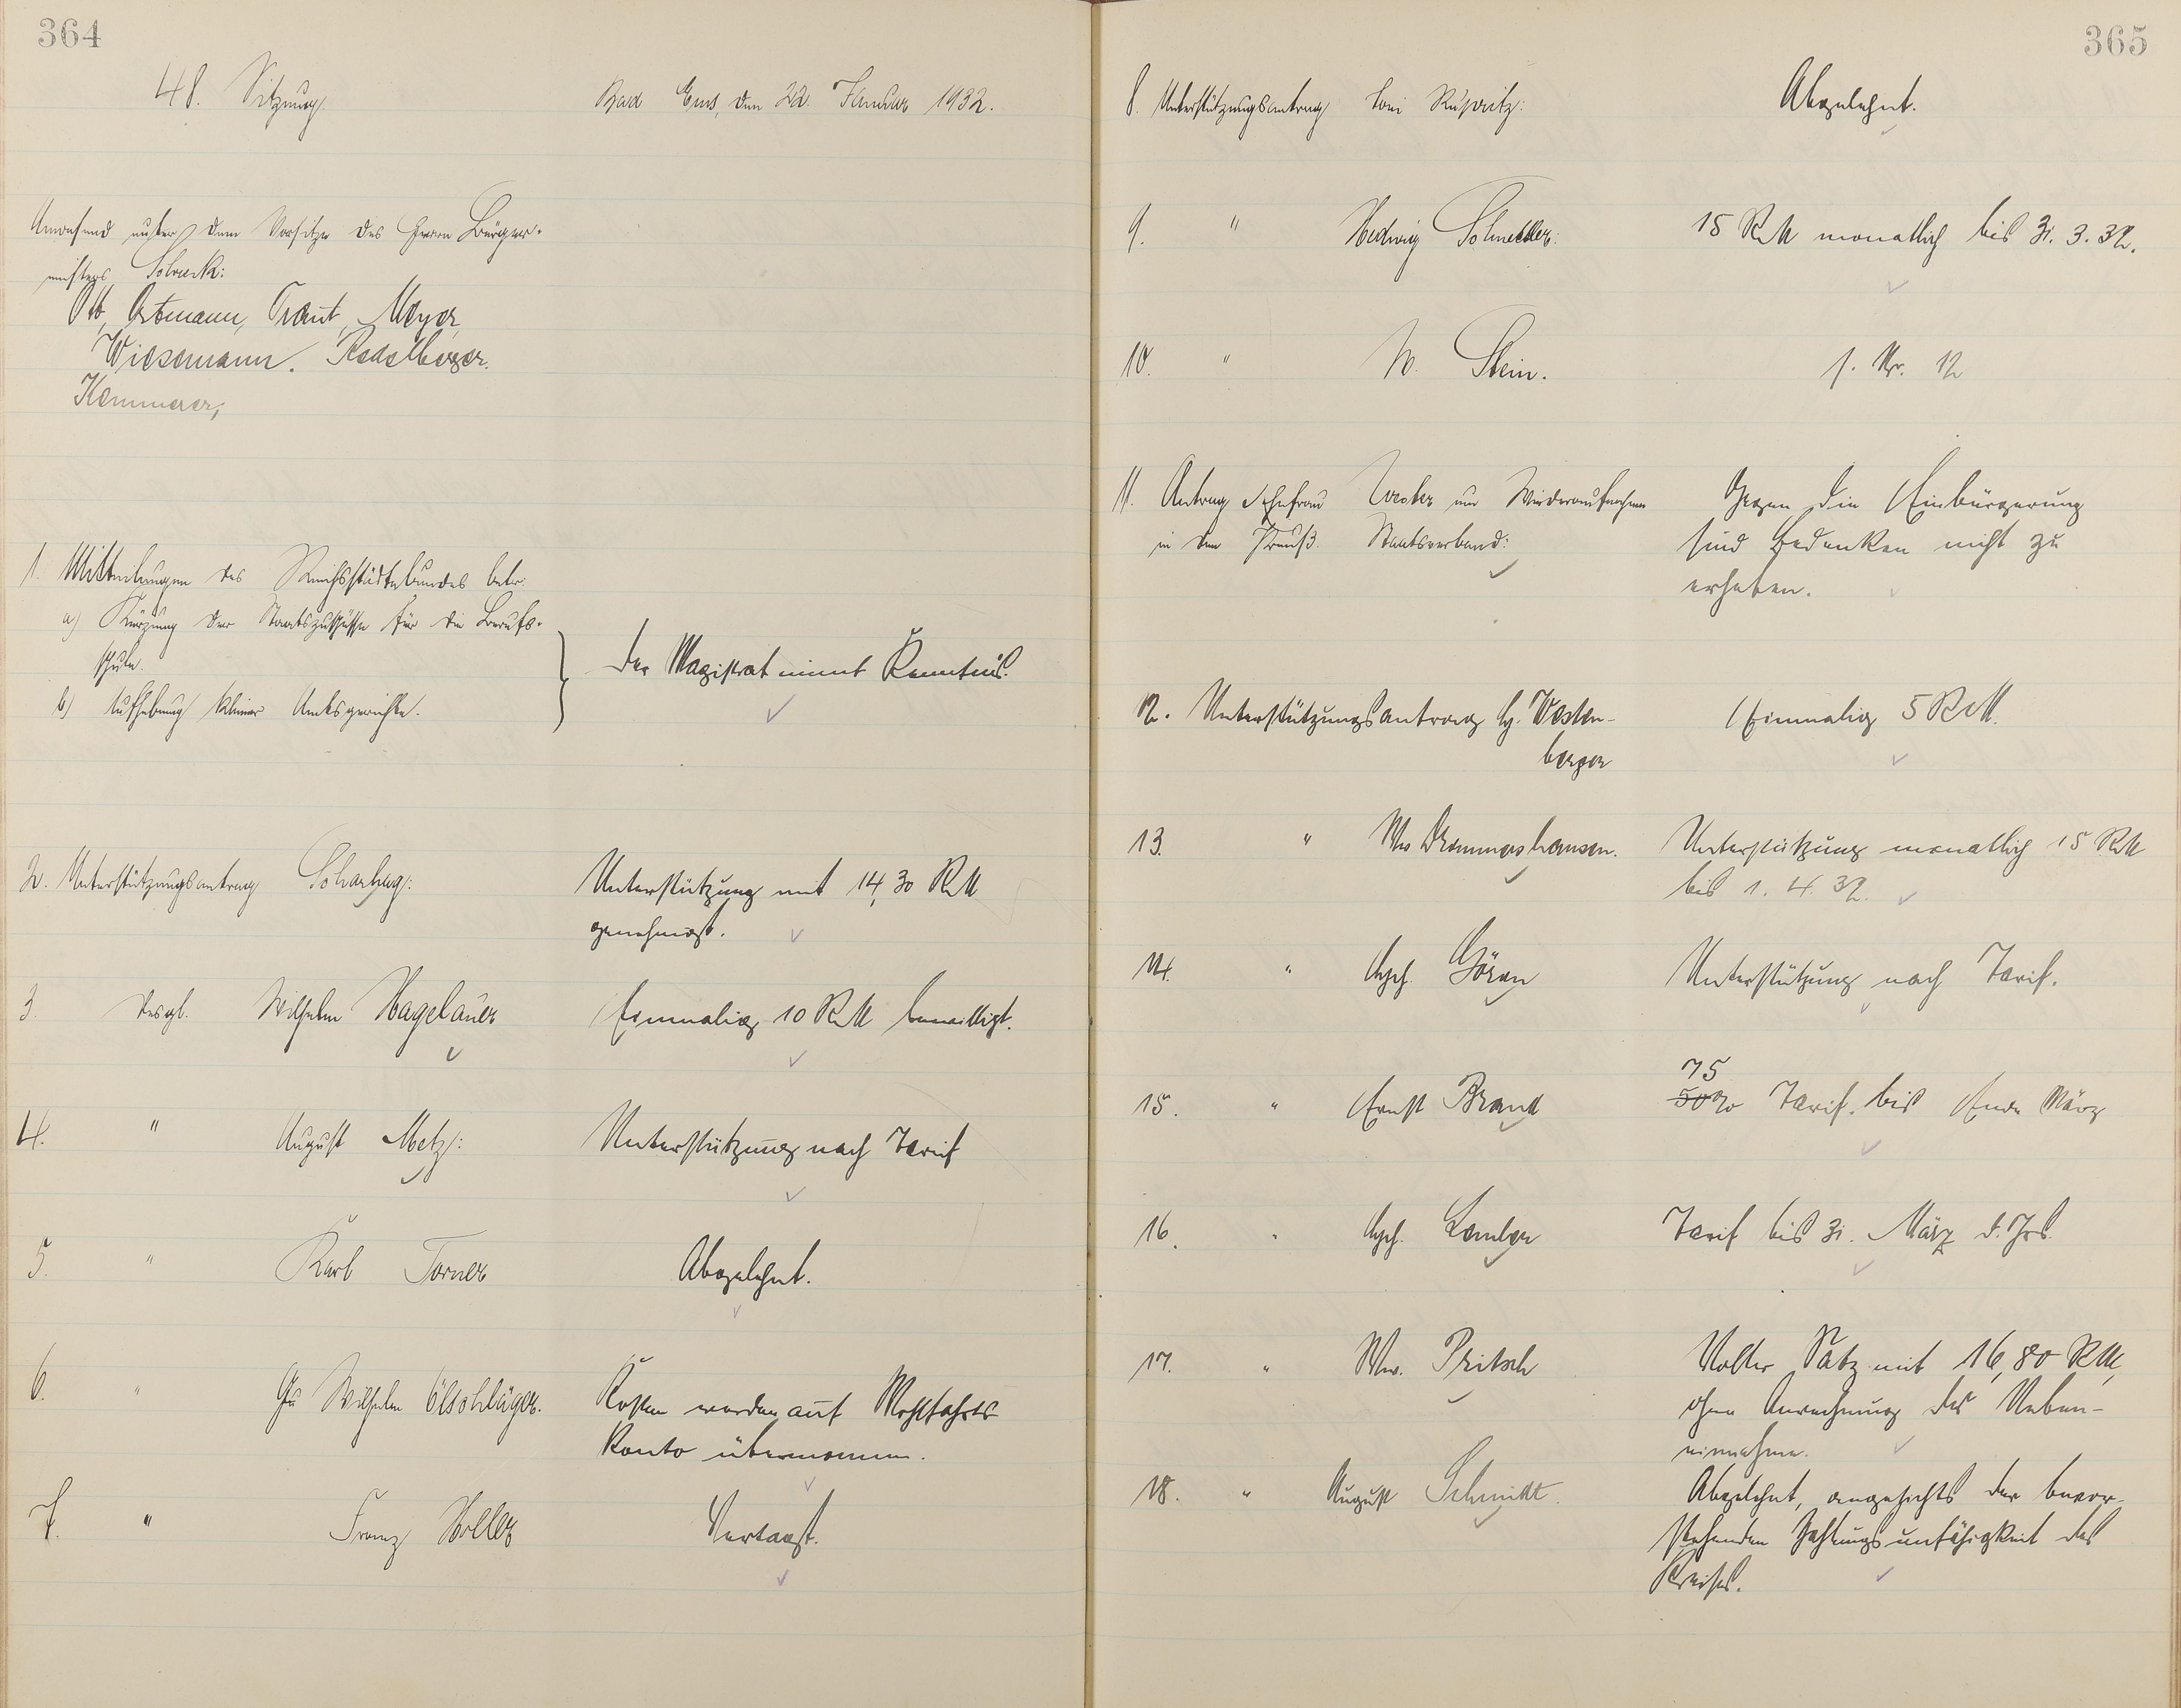 364
48. Sitzung.
Bad Ems, den 22. Januar 1932.
Anwesend unter dem Vorsitze des Herrn Bürger-
meisters Schreck:
Ott, Ortmann, Traut, Meyer,
Wiesemann. Redelberger.
Kemmerer,
1. Mitteilungen des Reichsstädtebundes betr.
a) Kürzung der Staatszuschüsse für die Berufs-
schule.
b) Aufhebung kleiner Amtsgerichte.
Der Magistrat nimmt Kenntnis.
2. Unterstützungsantrag Scharhag:
Unterstützung mit 14,30 RM
genehmigt.
3. Desgl. Wilhelm Hagelauer
Einmalig 10 RM bewilligt.
4. " August Metz:
Unterstützung nach Tarif
5. " Karl Forner
Abgelehnt.
6. " Wilhelm Ölschläger.
Kosten werden auf Wohlfahrts-
konto übernommen.
7. " Franz Holler
Vertagt.
365
8. Unterstützungsantrag
Abgelehnt.
9. " Hedwig Schnettler:
15 RM monatlich bis 31. 3. 32.
10. " W. Stein.
s. Nr. 12
11. Antrag Ehefrau um Wiederaufnahme
in den Preuß. Staatsverband:
Gegen die Einbürgerung
sind Bedenken nicht zu
erheben.
12. Unterstützungsantrag Hch. Westen-
berger
Einmalig 5 RM.
13. " Ww Drommershausen.
Unterstützung monatlich 15 RM
bis 1. 4. 32.
14. "
Unterstützung nach Tarif.
15. " Ernst Brand
75
50% Tarif. bis Ende März
16. "
Tarif bis 31. März d. Jrs.
17. " Ww. Pritsch
Voller Satz mit 16,80 RM,
ohne Anrechnung der Neben-
einnahme.
18. " August Schmidt.
Abgelehnt, angesichts der bevor-
stehenden Zahlungsunfähigkeit des
Kreises.